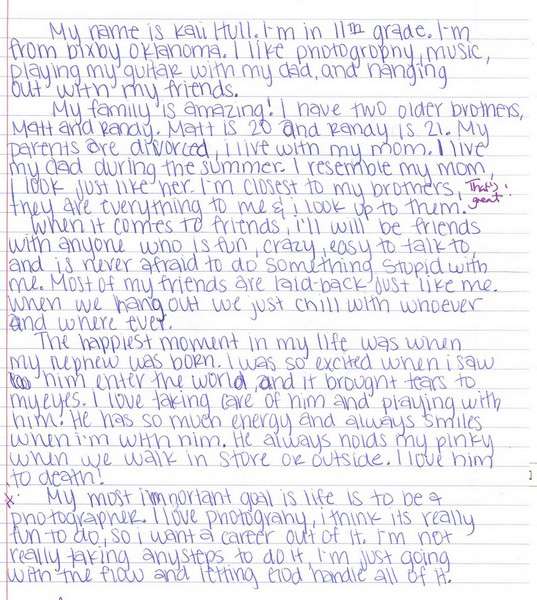 My name is Kali Hull. I'm in 11th grade. I'm
from bixby oklahoma. I like photography, music,
playing my guitar with my dad, and hanging
out with my friends.
My family is amazing! I have two older brothers,
Matt and Randy. Matt is 20 and Randy is 21. My
parents are divorced, i live with my mom. I live
my dad during the summer. I resemble my mom,
I look just like her. I'm closest to my brothers, That's great!
they are everything to me & i look up to them.
When it comes to friends, i'll will be friends
with anyone who is fun, crazy, easy to talk to,
and is never afraid to do something stupid with
me. Most of my friends are laid-back just like me.
when we hang out we just chill with whoever
and where ever.
The happiest moment in my life was when
my nephew was born. I was so excited when i saw
him enter the world and it brought tears to
my eyes. I love taking care of him and playing with
him. He has so much energy and always smiles
when i'm with him. He always holds my pinky
when we walk in store or outside. I love him
to death!
My most important goal is life is to be a
photographer. I love photograhy, i think its really
fun to do, so i want a career out of it. I'm not
really taking anysteps to do it, I'm just going
with the flow and letting God handle all of it.